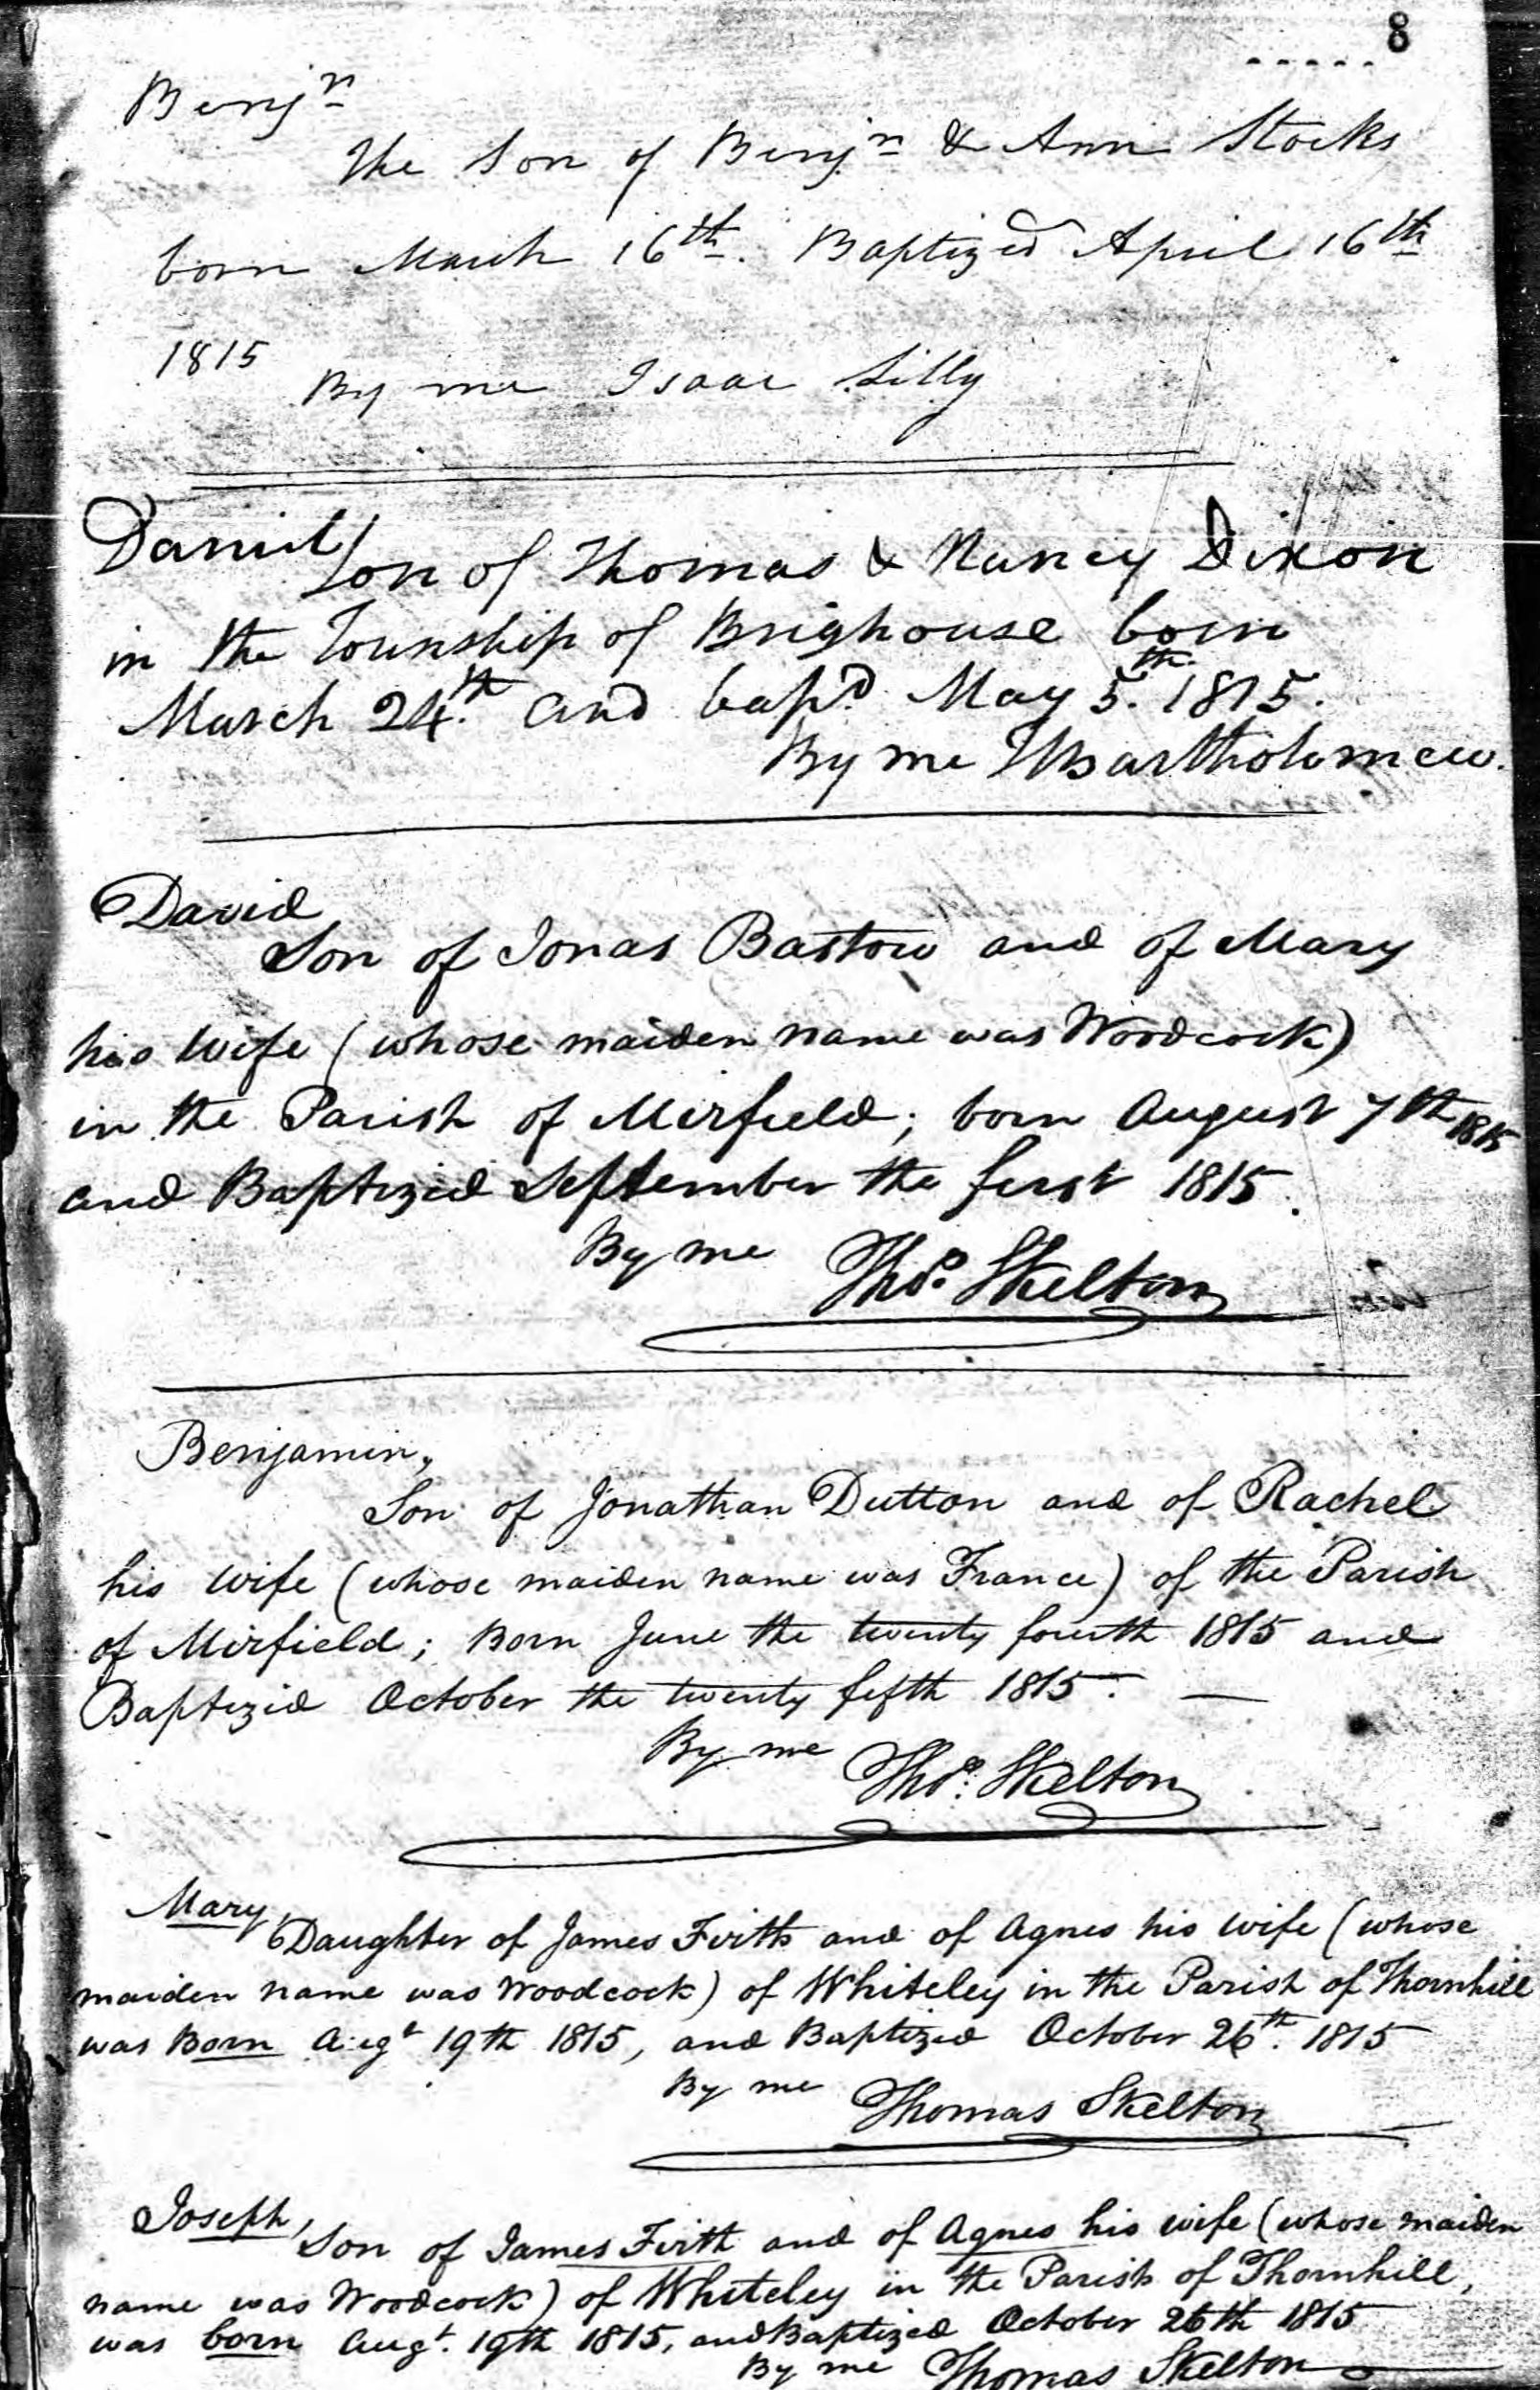 8
Benjn
the Son of Benjn & Ann Stocks
born March 16th. Baptized April 16th
1815
By me Isaac Lilly
Daniel
Son of Thomas & Nancy Dixon
in the Township of Brighouse born
March 24th. and bapd. May 5th. 1815.
By me Bartholomew.
David
Son of Jonas Bastow and of Mary
his Wife (whose maiden name was Woodcock)
in the Parish of Mirfield; born August 7th 1815
and Baptized September the first 1815.
By me Thos. Skelton
Benjamin,
Son of Jonathan Dutton and of Rachel
his Wife (whose maiden name was France) of the Parish
of Mirfield; Born June the twenty fourth 1815 and
Baptized October the twenty fifth 1815. —
By me Thos. Skelton
Mary,
Daughter of James Firth and of Agnes his Wife (whose
maiden name was Woodcock) of Whiteley in the Parish of Thornhill
was Born Augt 19th 1815, and Baptized October 26th. 1815
By me Thomas Skelton
Joseph,
Son of James Firth and of Agnes his wife (whose maiden
name was Woodcock) of Whiteley in the Parish of Thornhill,
was born Augt. 19th 1815, and Baptized October 26th 1815
By me Thomas Skelton